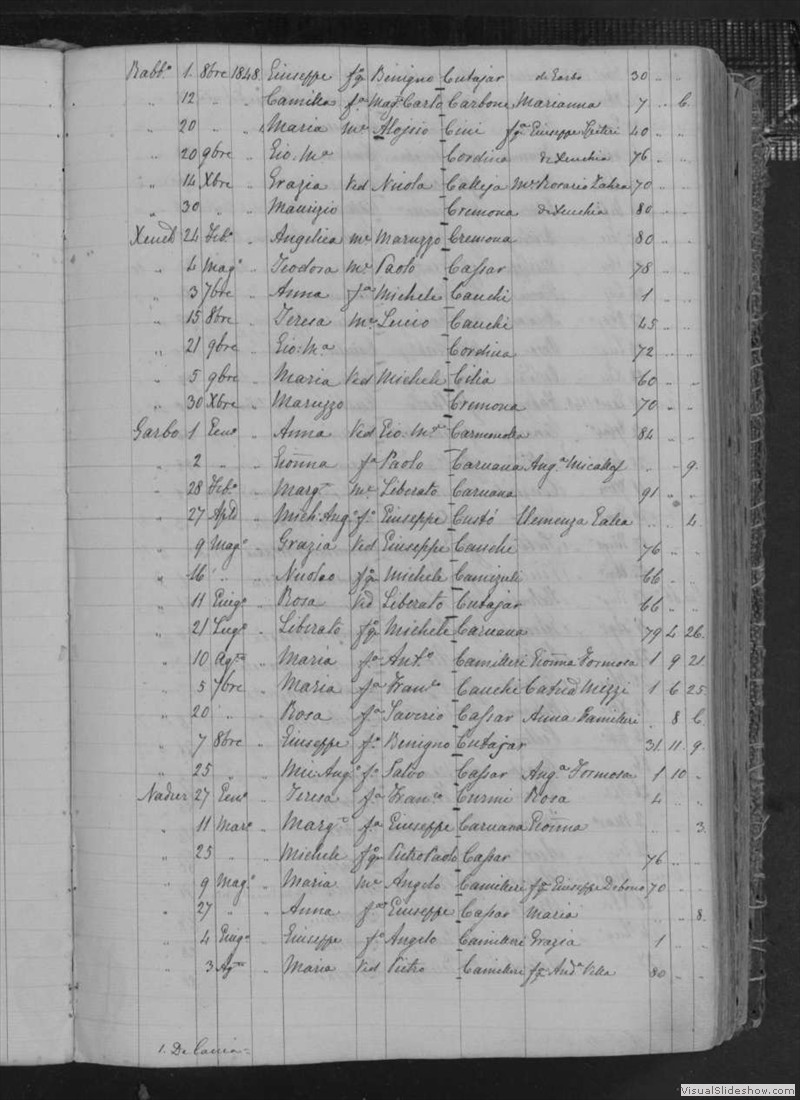 Rabb.o 1. 8bre 1848. Giuseppe fq Benigno Cutajar di Garbo 30 " "
" 12 " " Camilla f.a Mag.r Carlo Carbone Marianna 7 " 6.
" 20 " " Maria m.e Alojsio Cini fq.a Giuseppe 40 " "
" 20 9bre " Gio. M.a Cordina di Xeuchia 76 " "
" 14 Xbre " Grazia Ved Nicola Calleja M.e Rosario 70 " "
" 30 " " Maurizio Cremona di Xeuchia 80 " "
Xeuk 24 Feb.o " Angelica m.e Maruzzo Cremona 80 " "
" 4 Mag.o " Teodora M.e Paolo Cassar 78 " "
" 3 7bre " Anna f.a Michele Cauchi 1 " "
" 15 8bre " Teresa M.e Cauchi 45 " "
" 21 9bre " Gio: M.a Cordina 72 " "
" 5 9bre " Maria Ved Michele Cilia 60 " "
" 30 Xbre " Maruzzo Cremona 70 " "
Garbo 1 Gen.o " Anna Ved Gio: M.a 84 " "
" 2 " " Giovna f.a Paolo Caruana Ang.a Micallef " " 9.
" 28 Feb.o " Marg.a M.e Liberato Caruana 91 " "
" 27 Aple " Mich: Ang.o f.o Giuseppe Custó Clemenza " " 4.
" 9 Mag.o " Grazia Ved Giuseppe Cauchi 76 " "
" 16 " " Nicolao fq Michele 66 " "
" 11 Giug.o " Rosa Ved Liberato Cutajar 66 " "
" 21 Lug.o " Liberato fq Michele Caruana 79 4 26.
" 10 Ag.to " Maria f.a Ant.o Camilleri Giovna Formosa 1 9 21
" 5 7bre " Maria f.a Fran.co Cauchi Catna Mizzi 1 6 25
" 20 " " Rosa f.a Saverio Cassar Anna Camilleri . 8 6.
" 7 8bre " Giuseppe f.o Benigno Cutajar 31 11 9.
" 25 " " Mic: Ang.o f.o Salvo Cassar Ang.a Formosa 1 10 "
Nadur 27 Gen.o " Teresa f.a Fran.co Curmi Rosa 4 " "
" 11 Mar.o " Marg.a f.a Giuseppe Caruana Giovna " " 3.
" 25 " " Michele fq Pietro Paolo Cassar 76 " "
" 9 Mag.o " Maria M.e Angelo Camilleri fq Giuseppe Debono 70 " "
" 27 " " Anna f.a Giuseppe Cassar Maria " " 8.
" 4 Giug.o " Giuseppe f.o Angelo Camilleri Grazia 1 " "
" 3 Ag.to " Maria Ved Pietro Camilleri fq And.a Vella 80 " "
VisualSlideshow.com